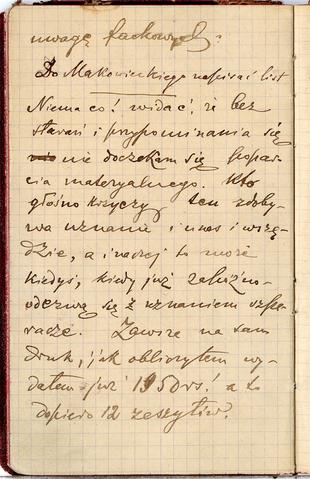 uwagę fachowych.
Do Makowieckiego napisać list
Niema co! widać, że bez
starań i przypominania się
nie doczekam się popar-
cia materyalnego. Kto
głośno krzyczy ten zdoby-
wa uznanie i u nas i wszę-
dzie, a inaczej to może
kiedyś, kiedy już za późno-
odezwą się z uznaniem
Zawsze na sam
druk, jak obliczyłem wy-
datem już 1950 rs! a to
dopiero 12 zeszytów.